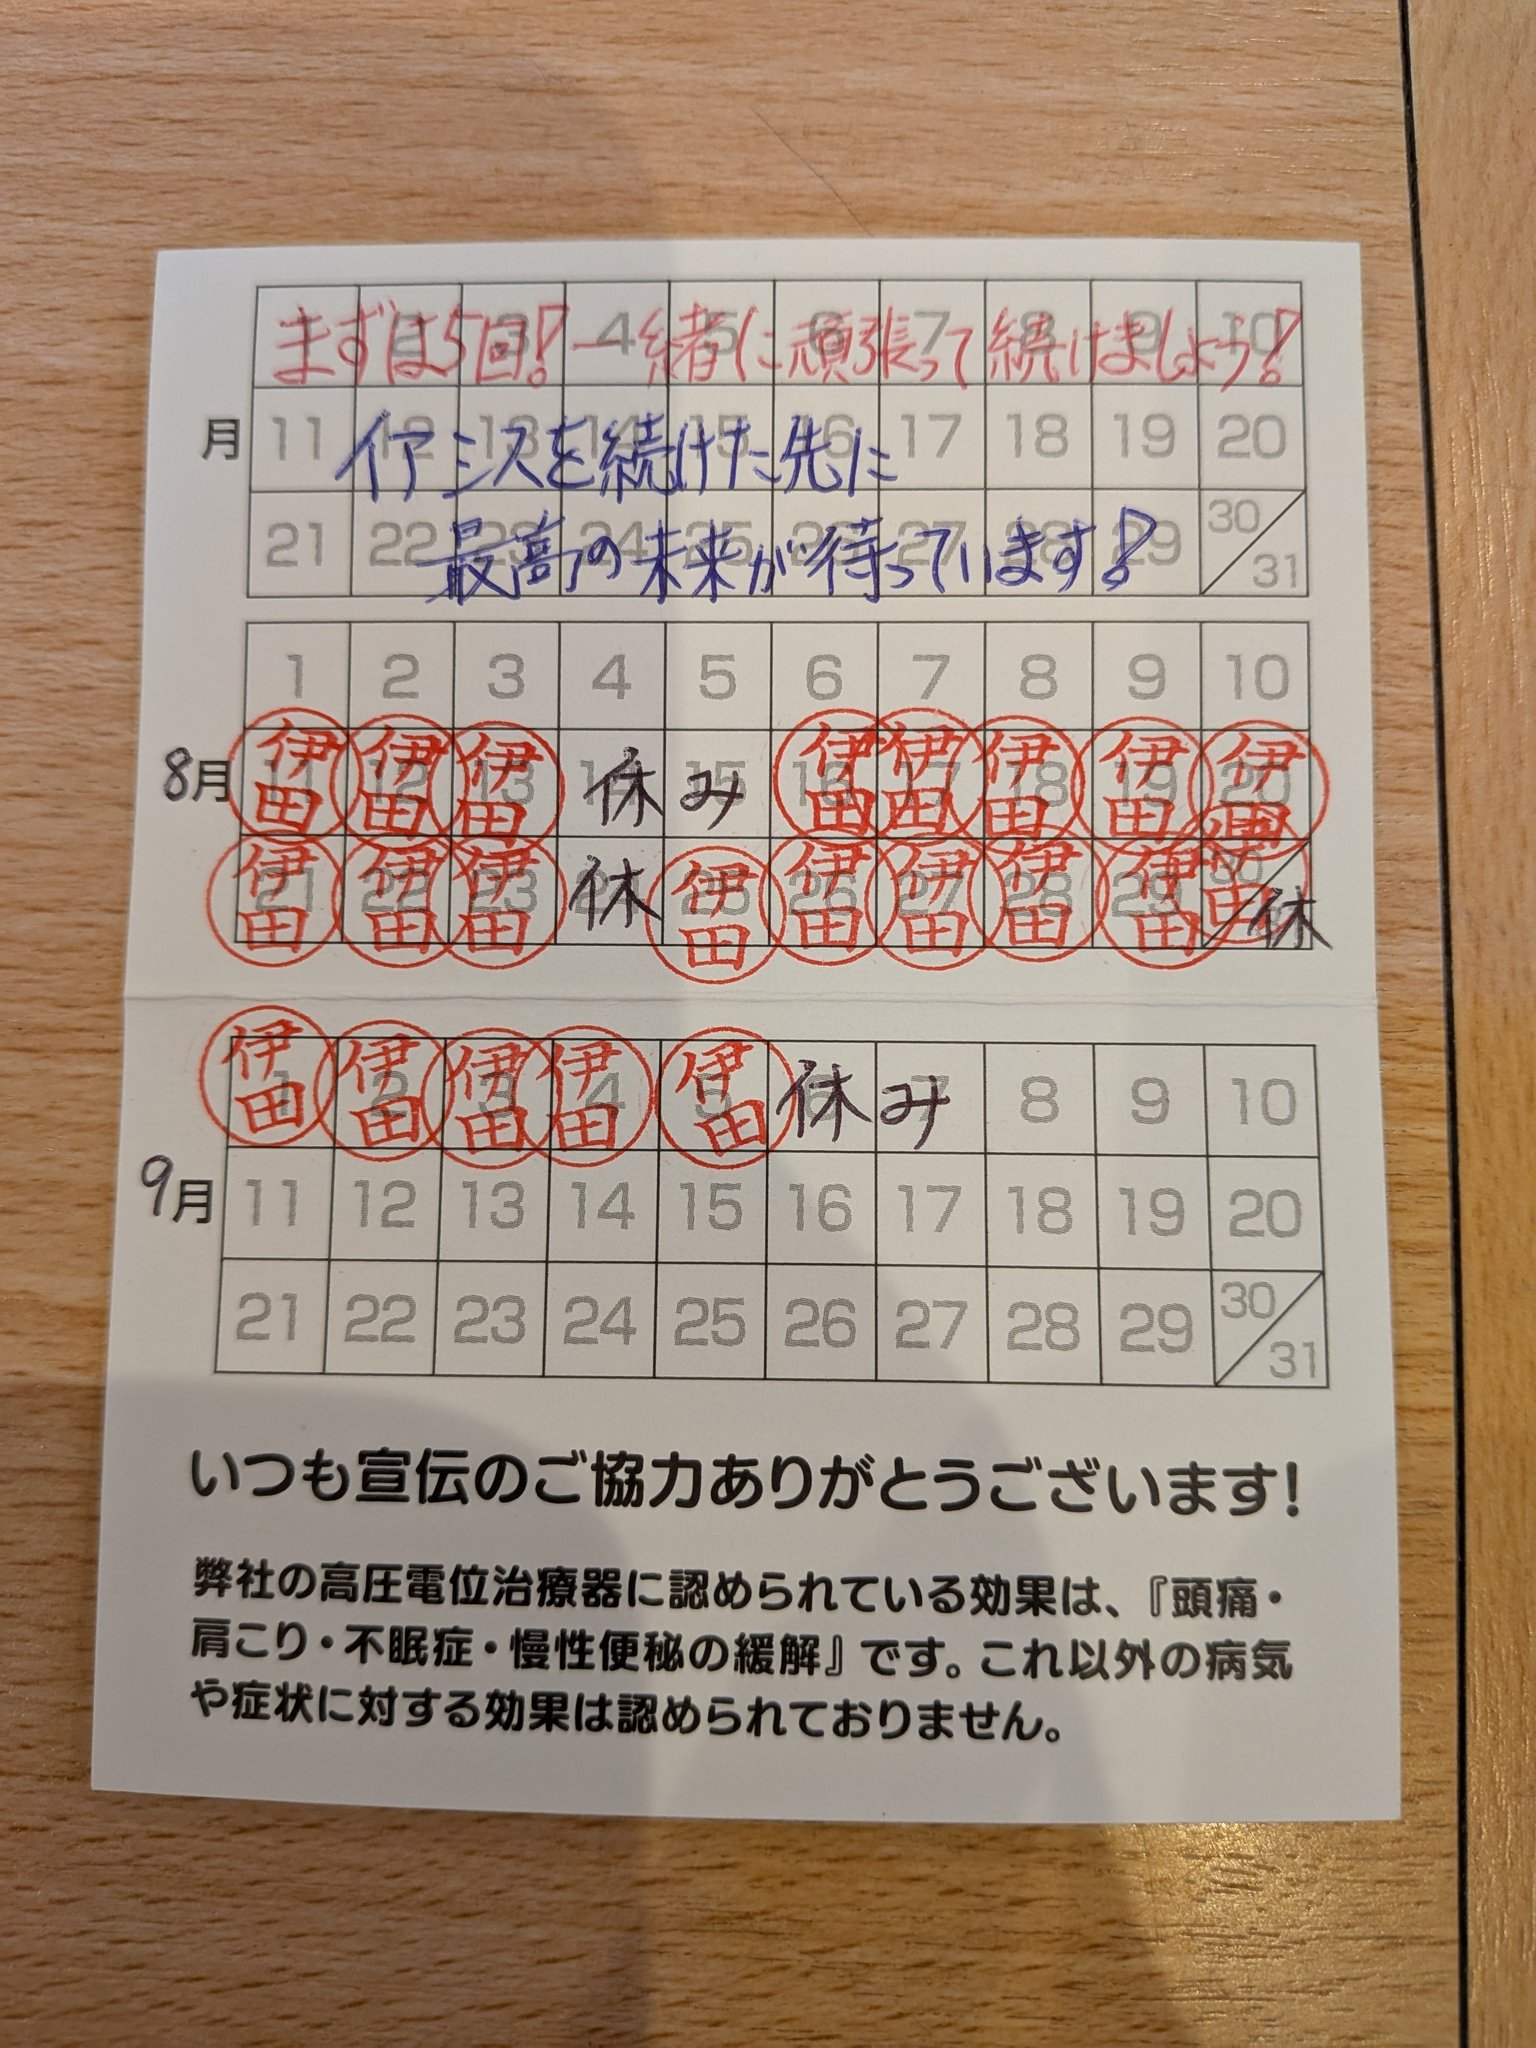 1 2 3 4 5 6 7 8 9 10
まずは5回!一緒に頑張って続けましょう!
月 11 12 13 14 15 16 17 18 19 20
イアシスを続けた先に
21 22 23 24 25 26 27 28 29 30 31
最高の未来が待っています!
1 2 3 4 5 6 7 8 9 10
8月 11 12 13 14 15 16 17 18 19 20
伊田 伊田 伊田 休み 伊田 伊田 伊田 伊田 伊田
21 22 23 24 25 26 27 28 29 30
伊田 伊田 伊田 休 伊田 伊田 伊田 伊田 伊田 伊田 休
1 2 3 4 5 6 7 8 9 10
伊田 伊田 伊田 伊田 伊田 休み
9月 11 12 13 14 15 16 17 18 19 20
21 22 23 24 25 26 27 28 29 30 31
いつも宣伝のご協力ありがとうございます!
弊社の高圧電位治療器に認められている効果は、『頭痛・
肩こり・不眠症・慢性便秘の緩解』です。これ以外の病気
や症状に対する効果は認められておりません。